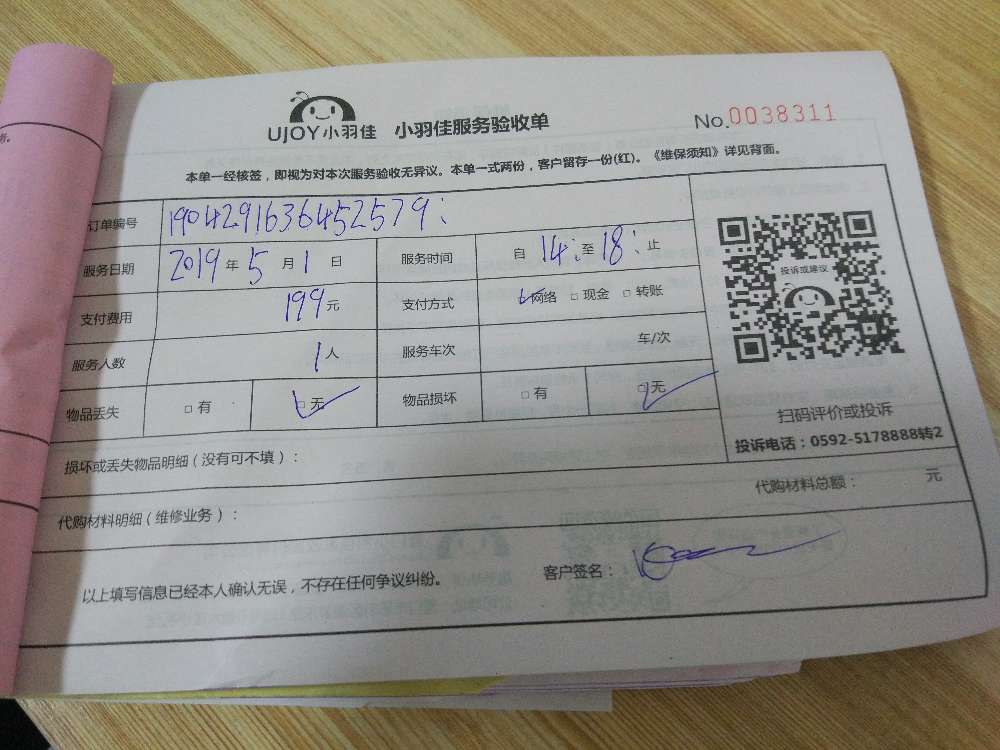 UJOY小羽佳 小羽佳服务验收单 No.0038311
本单一经核签，即视为对本次服务验收无异议。本单一式两份，客户留存一份(红)。《维保须知》详见背面。
订单编号 1904291636452579:
服务日期 2019年5月1日 服务时间 自14:至18:止
支付费用 199元 支付方式 网络 □现金 □转账
服务人数 1人 服务车次 车/次
物品丢失 □有 □无 物品损坏 □有 □无
投诉或建议
扫码评价或投诉
投诉电话：0592-5178888转2
损坏或丢失物品明细（没有可不填）：
代购材料明细（维修业务）： 代购材料总额： 元
以上填写信息已经本人确认无误，不存在任何争议纠纷。 客户签名：